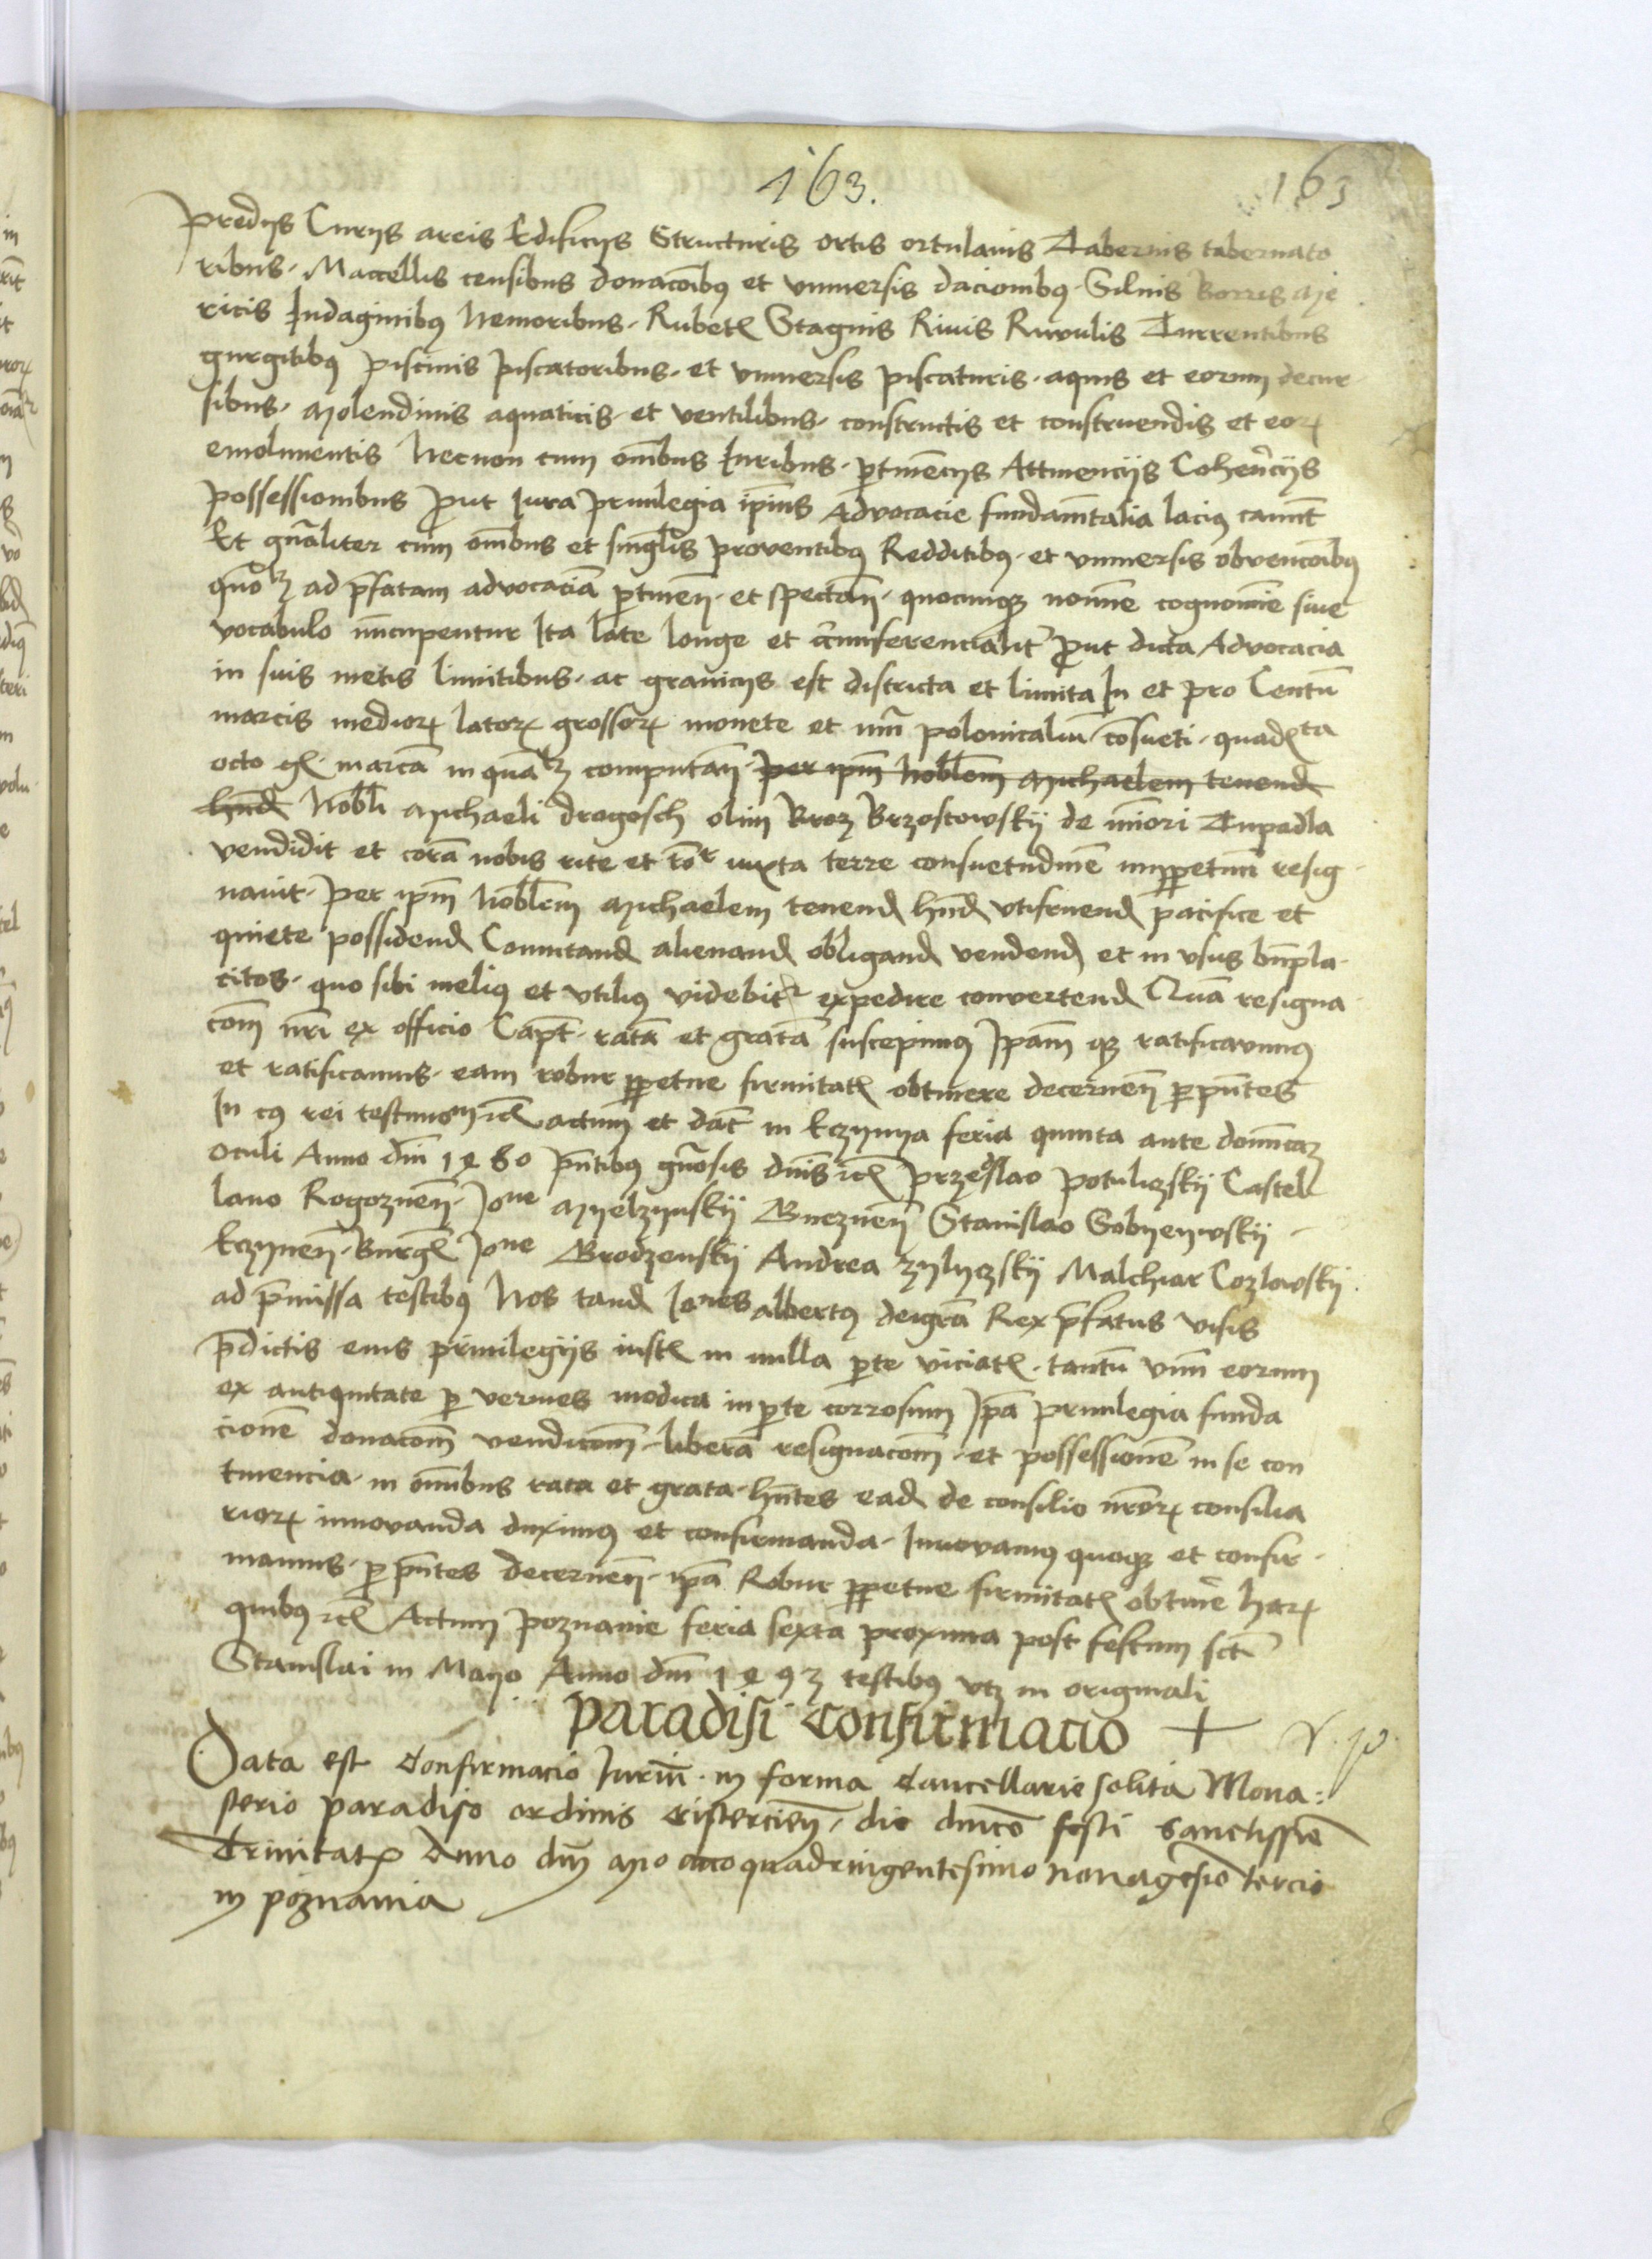 163.
163
predijs Curijs areis Edificijs Structuris ortis ortulanis Tabernis tabernato
ribus. Maccellis censibus donacōibꝫ et vniuersis dacionibꝫ. Siluis Borris Me
ricis Indaginibꝫ Nemoribus. Rubetꝭ Stagnis Riuis Riuulis Turrentibus
gurgitibꝫ piscinis piscatoribus. et vniuersis piscaturis. aquis et eorum decur
sibus. Molendinis aquaticis. et ventilibus. constructis et construendis et eoꝝ
emolumentis Necnon cum om̄ibus Iuribus. ꝑtinēcijs Attinencijs Coherēcijs
possessionibus ꝓut Iura priuilegia ip̄ius Advocacie fundam̄talia laciꝫ canunt
Et gn̄aliter cum om̄ibus et singl̄is proventibꝫ Redditibꝫ. et vniuersis obvencōibꝫ
quōlꝫ ad p̄fatam advocaciā ꝑtineñ. et spectañ. quocunqꝫ nomine cognomine siue
vocabulo nūcupentur Ita late longe et circūferencialit᷑ ꝓut dicta Advocacia
in suis metis limitibus. ac granicijs est districta et limita In et pro Centū
marcis medioꝝ latoꝝ grossoꝝ monete et nūi polonicaliū cōsueti. quadꝝta
octo gꝭ. marcā in quālꝫ computañ. per ip̄m Nobilem Michaelem tenend
hn̄d Nobli Michaeli drogosch olim Broz Brzostowskij de mīori Tupadla
vendidit et corā nobis rite et rōr iuxta terre consuetudinē imꝑpetuū resig
nauit. per ip̄m Nobilem Michaelem tenend hn̄d vtifruend pacifice et
quiete possidend Comutand alienand obligand vendend et in vsus bn̄pla
citos. quo sibi meliꝫ et vtiliꝫ videbit᷑ expedire convertend Quā resigna
com̄ nri ex officio Capt̄. ratā et gratā suscepimꝫ Ipam̄ qꝫ ratificavimꝫ
et ratificamus. eam robur ꝑpetue firmitatꝭ obtinere decerneñ ꝑ pn̄tes
In cꝫ rei testimom̄ ꝛcꝭ actum et dat̄ in Kczynya feria quinta ante domīcaꝫ
oculi Anno dm̄ 1480 pn̄tibꝫ gn̄osis dn̄is ꝛcꝭ Przeslao potuliczskij Castel
lano Rogozneñ. Jone Myelzynskij Bneczneñ Stanislao Sobyeywskij
Kczyneñ. Burgꝭ Jone Brodzenskij Andrea Zylyczskij Malchiar Cozlowskij
ad p̄missa testibꝫ Nos tand Jones albertꝫ deigrā Rex p̄fatus visis
p̄dictis eius priuilegijs iustꝭ in nulla ꝑte viciatꝭ. tantū vnū eorum
ex antiquitate ꝑ vermes modica in ꝑte corrosum Ipā priuilegia funda
cionē donacom̄ vendicom̄. liberā resignacom̄. et possessionē in se con
tinencia. in om̄ibus rata et grata. hn̄tes ead de consilio nr̄oꝝ consilia
rioꝝ innovanda duximꝫ et confirmanda. Innovamꝫ quoqꝫ et confir
mamus. ꝑ pn̄tes decerneñ. ip̄a Robur ꝑpetue firmitatꝭ obtinē haꝝ
quibꝫ ꝛcꝭ Actum poznanie feria sexta proxima post festum sct̄i
Stanislai in Mayo Anno dm̄ 1493 testibꝫ vtꝫ in originali
Paradisi Confirmacio +
Data est Confirmacio Iuriū. in forma Cancellarie solita Mona:
sterio paradiso ordinis Cisterciēñ. die dnīco festi sanctissīe
Trinitatꝭ Anno dnj Mo cccco quadringentesimo nonagesio tercio
in poznania